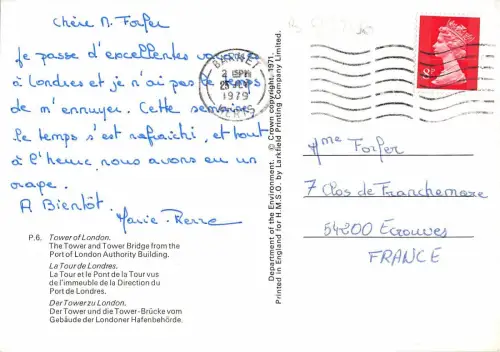 Chère M. Forfer
Je passe d'excellentes
à Londres et je n'ai pas le temps
de m'ennuyer. Cette semaine
le temps s'est rafraîchi, et tout
à l'heure nous avons eu un
orage.
A Bientôt.
Marie-Pierre
P.6. Tower of London.
The Tower and Tower Bridge from the
Port of London Authority Building.
La Tour de Londres.
La Tour et le Pont de la Tour vus
de l'immeuble de la Direction du
Port de Londres.
Der Tower zu London.
Der Tower und die Tower-Brücke vom
Gebäude der Londoner Hafenbehörde.
Department of the Environment. © Crown copyright, 1971.
Printed in England for H.M.S.O. by Larkfield Printing Company Limited.
BARNET
1979
HERTS
Mme Forfer
7 Clos de Franchemare
54200 Ecrouves
FRANCE